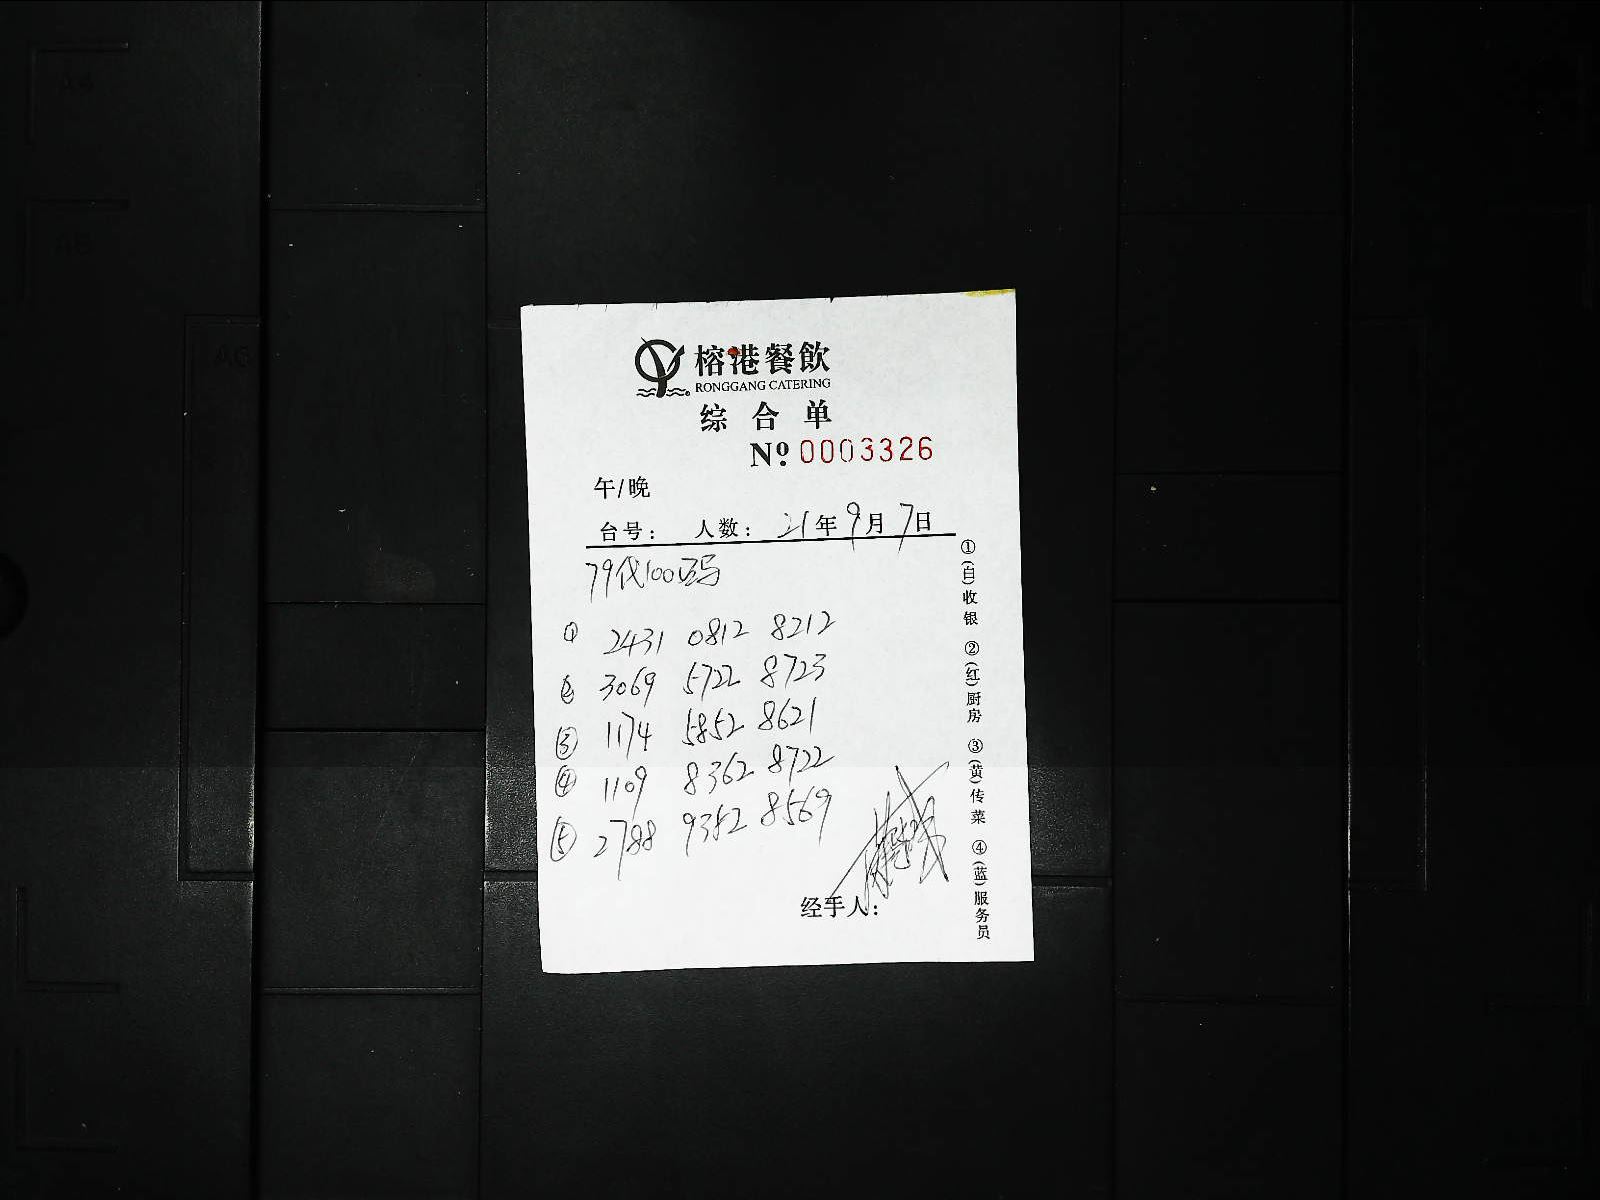 榕港餐飲
RONGGANG CATERING
综合单
Nº 0003326
午/晚
台号： 人数： 21年9月7日
79代100
① 2431 0812 8212
② 3069 5722 8723
③ 1174 5852 8621
④ 1109 8362 8722
⑤ 2788 9352 8569
经手人：
①(白)收银 ②(红)厨房 ③(黄)传菜 ④(蓝)服务员